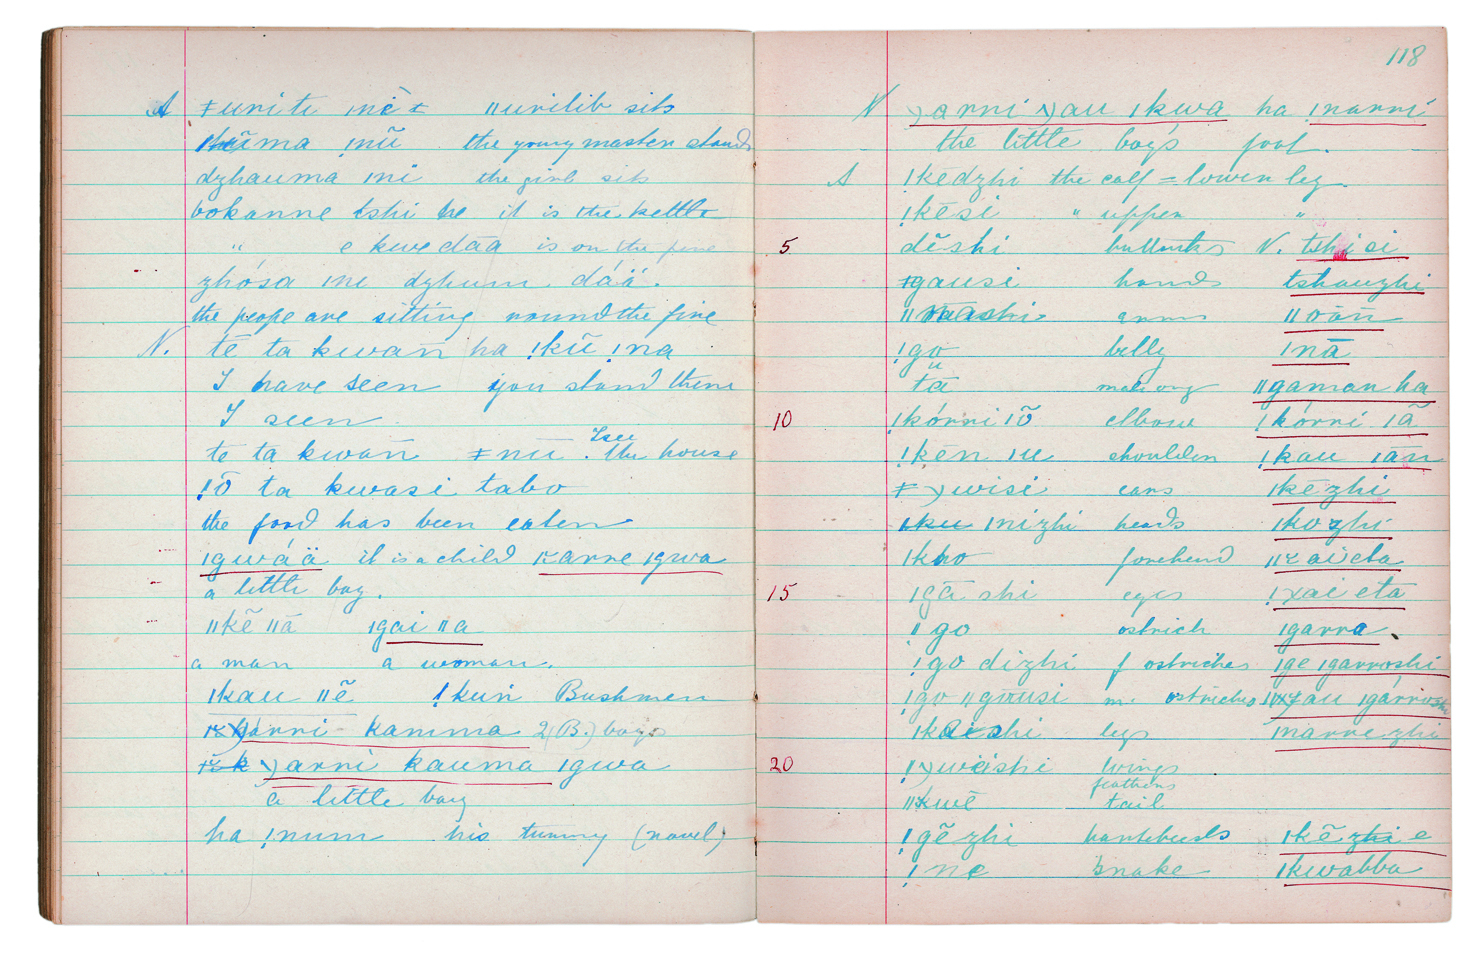 A ǂuriti ınĕ ǂ ǁurilib sits
ũma ınũ the young master stands
dzhauma ıni the girl sits
bokanne tshi he it is the kettle
" e kwe dāa is on the fire
zhósa ıne dzhum dáä.
the peope are sitting round the fire
N. tē ta kwañ ha !kũ !na
I have seen you stand there
I seen
I see
tē ta kwañ ǂnū. the house
!ō ta kwasi tabo
the food has been eaten
ıgwáä it is a child arre ıgwa
a little boy.
ǁkẽ ǁā ıgai ǁa
a man a woman.
ıkau ǁẽ !kuṅ Bushmen
árni kamma 2(B.) boys
arni kauma ıgwa
a little boy
ha !num his tummy (navel)
118
N arni au ıkwa ha !narri
the little boy's foot.
A !kedzhi the calf = lower leg.
!kēsi " upper "
5 dĕshi buttocks N. tshisi
gausi hands tshauzhi
ǁ arms ǁoāñ
!gu belly ınā
tā ǁgaman ha
10 !kórni ıõ elbow !kórni ıã
!kēn ıu shoulder !kau ıãn
ǂ wisi ears ıkēzhi
ınizhi heads ıkozhi
ıkho forehead aieta
15 ıgā shi eyes !xai eta
!!go ostrich ıgarra.
!go dizhi f ostriches ıge ıgarroshi
!go ǁgausi m. ostriches au ıgárroshi
legs narrezhi
20 ! wāshi wings
feathers
ǁkwē tail
!gĕzhi hartebeests ıkẽ e
!ne snake ıkwabba